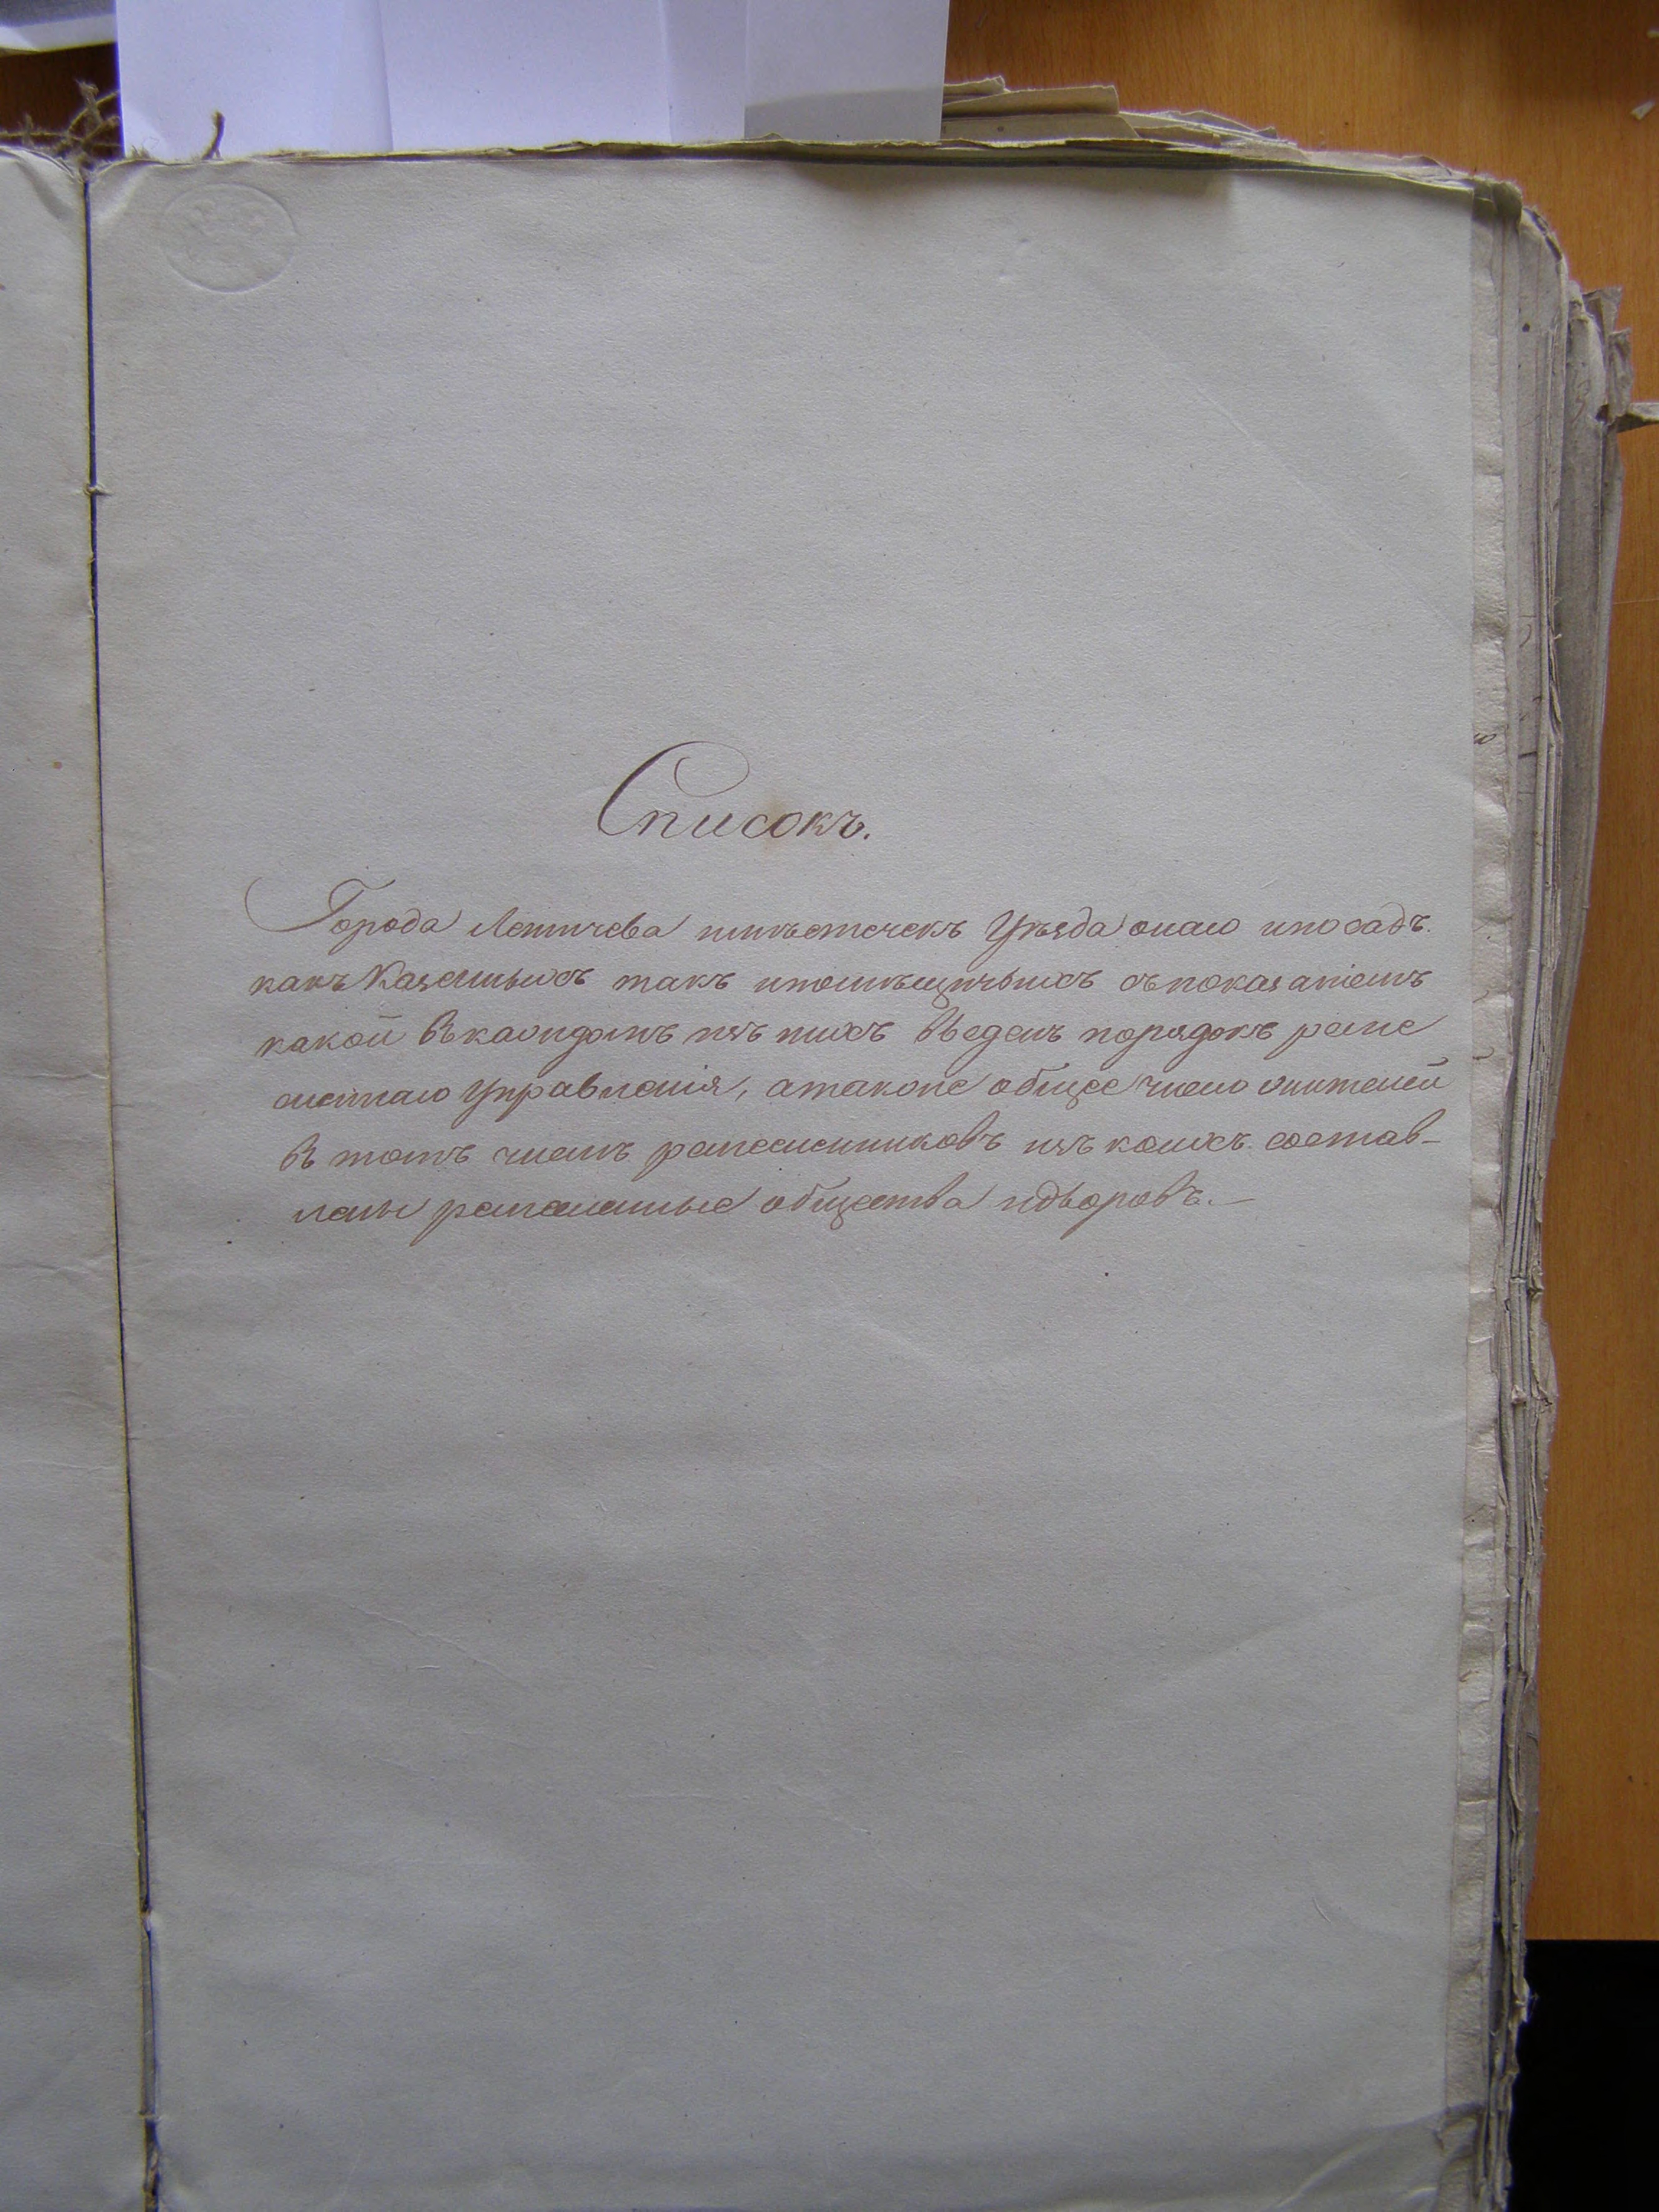 Списокъ.
Города Летичева имѣстечекъ Уѣзда онаго ипосадъ
какъ Казенныхъ такъ ипомѣщичьихъ съпоказаніемъ
какой Вкаждомъ изъ нихъ Введенъ порядокъ реме
сленнаго Управленія, атакже общее число жителей
В томъ числѣ ремесленниковъ изъ коихъ состав-
лены ремесленные общества идворовъ.—